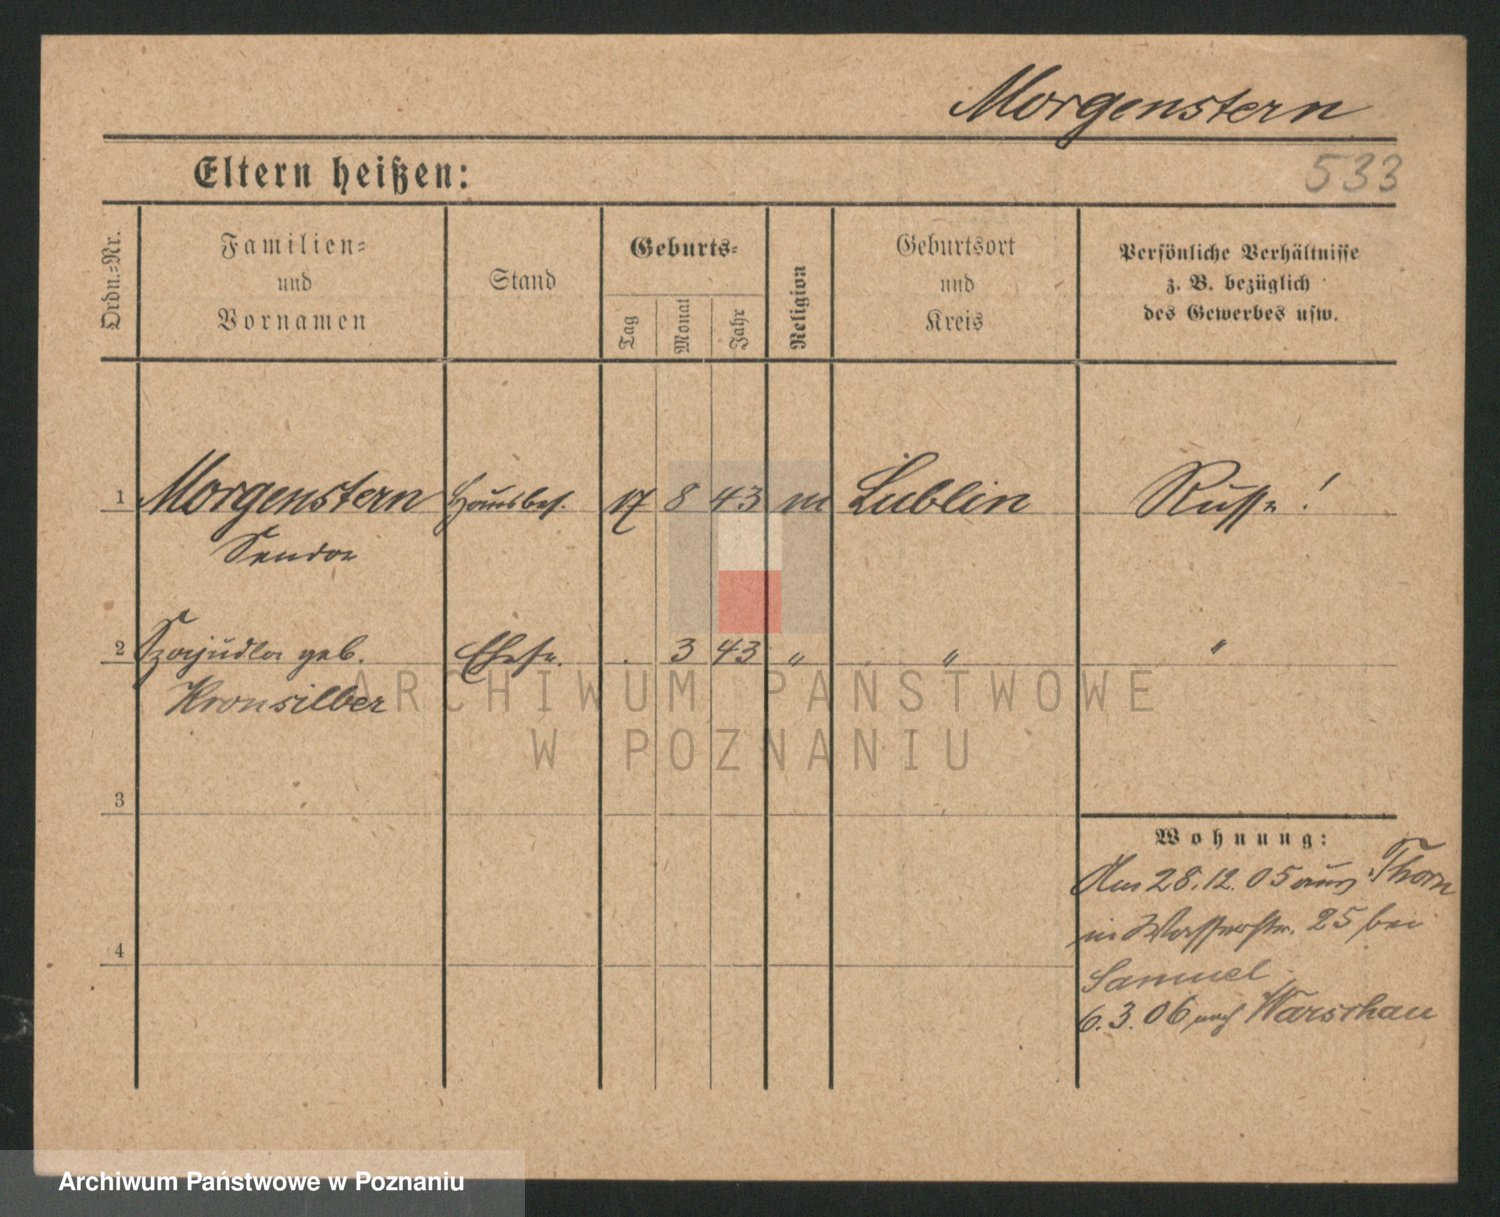 Morgenstern
Eltern heißen:
533
Ordn.-Nr.
Familien-
und
Vornamen
Stand
Geburts-
Tag
Monat
Jahr
Religion
Geburtsort
und
Kreis
Persönliche Verhältnisse
z. B. bezüglich
des Gewerbes usw.
1 Morgenstern Hausbes. 17 8 43 m Lublin Russe!
Sendor
2 Szajudla geb. Ehefr. . 3 43 " " "
Kronsilber
ARCHIWUM PAŃSTWOWE
W POZNANIU
3
Wohnung:
Am 28.12.05 aus Thorn
in Wasserstr. 25 bei
4
Samuel
6.3.06 nach Warschau
Archiwum Państwowe w Poznaniu